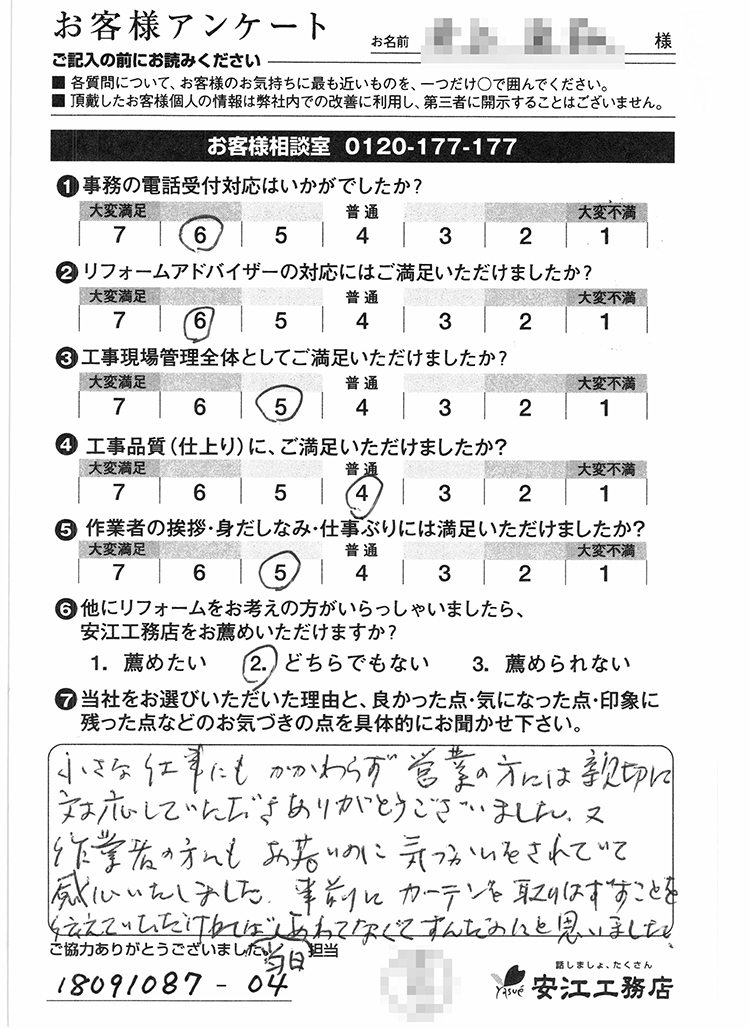 お客様アンケート
お名前 様
ご記入の前にお読みください
■ 各質問について、お客様のお気持ちに最も近いものを、一つだけ〇で囲んでください。
■ 頂戴したお客様個人の情報は弊社内での改善に利用し、第三者に開示することはございません。
お客様相談室 0120-177-177
❶ 事務の電話受付対応はいかがでしたか?
大変満足 普通 大変不満
7 6 5 4 3 2 1
❷ リフォームアドバイザーの対応にはご満足いただけましたか?
大変満足 普通 大変不満
7 6 5 4 3 2 1
❸ 工事現場管理全体としてご満足いただけましたか?
大変満足 普通 大変不満
7 6 5 4 3 2 1
❹ 工事品質(仕上り)に、ご満足いただけましたか?
大変満足 普通 大変不満
7 6 5 4 3 2 1
❺ 作業者の挨拶・身だしなみ・仕事ぶりには満足いただけましたか?
大変満足 普通 大変不満
7 6 5 4 3 2 1
❻ 他にリフォームをお考えの方がいらっしゃいましたら、
安江工務店をお薦めいただけますか?
1. 薦めたい 2. どちらでもない 3. 薦められない
❼ 当社をお選びいただいた理由と、良かった点・気になった点・印象に
残った点などのお気づきの点を具体的にお聞かせ下さい。
小さな仕事にもかかわらず営業の方には親切に
対応していただきありがとうございました。又
作業者の方にもお若いのに気づかいをされていて
感心いたしました。事前にカーテンを取りはずすことを
伝えていただければ当日あわてなくてすんだのにと思いました。
ご協力ありがとうございました。 担当
18091087-04
話しましょ、たくさん
Yasué 安江工務店